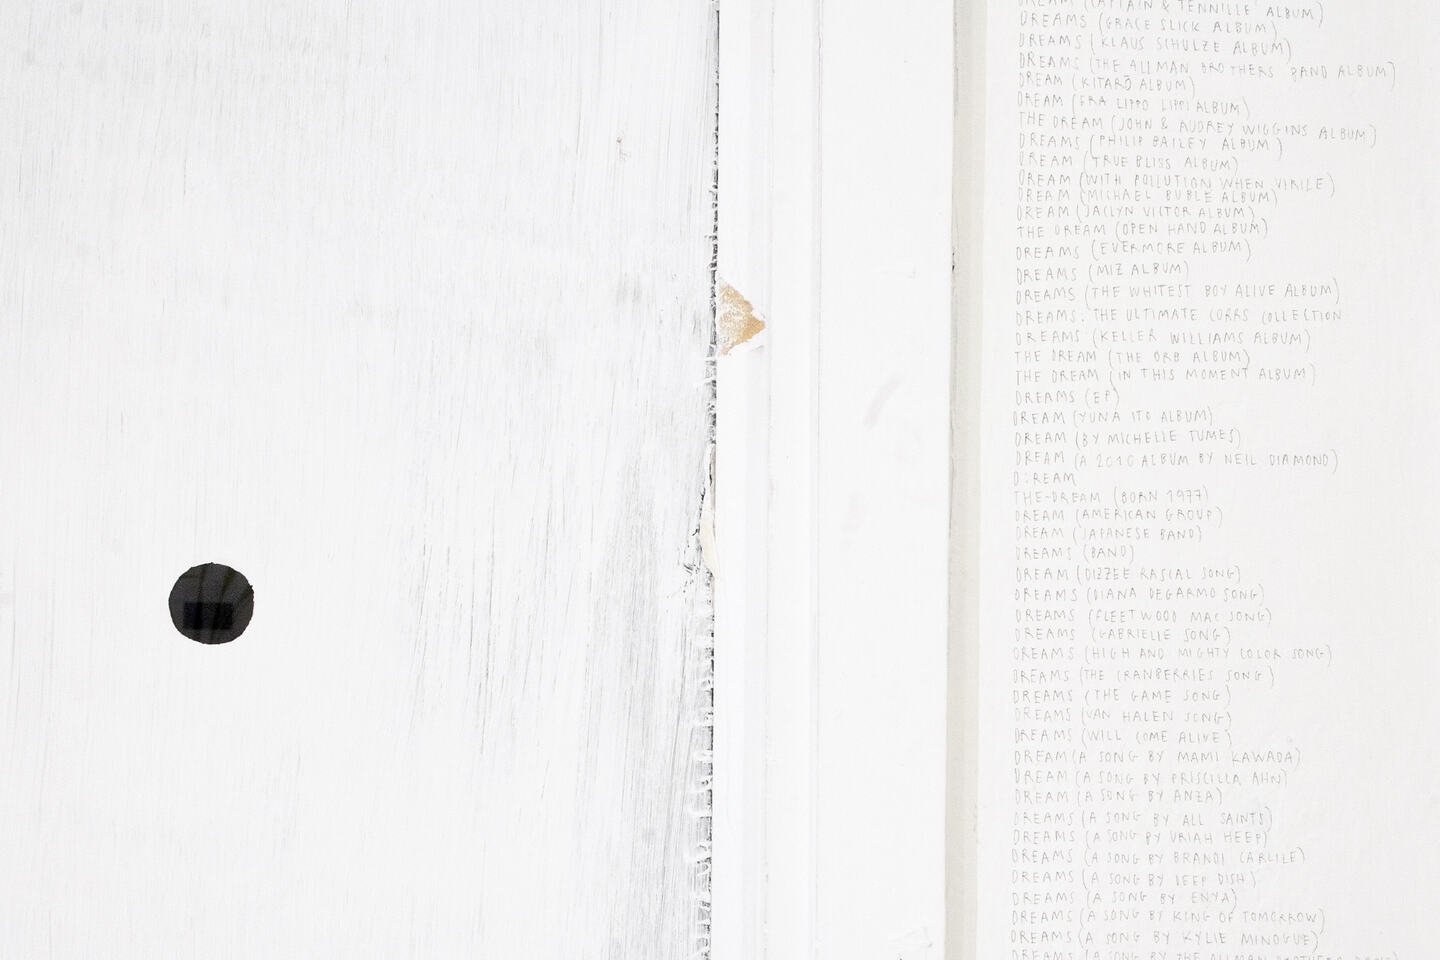 DREAM (CAPTAIN & TENNILLE ALBUM)
DREAMS (GRACE SLICK ALBUM)
DREAMS (KLAUS SCHULZE ALBUM)
DREAMS (THE ALLMAN BROTHERS BAND ALBUM)
DREAM (KITARŌ ALBUM)
DREAM (FRA LIPPO LIPPI ALBUM)
THE DREAM (JOHN & AUDREY WIGGINS ALBUM)
DREAMS (PHILIP BAILEY ALBUM)
DREAM (TRUE BLISS ALBUM)
DREAM (WITH POLLUTION WHEN VIRILE)
DREAM (MICHAEL BUBLE ALBUM)
DREAM (JACLYN VICTOR ALBUM)
THE DREAM (OPEN HAND ALBUM)
DREAMS (EVERMORE ALBUM)
DREAMS (MIZ ALBUM)
DREAMS (THE WHITEST BOY ALIVE ALBUM)
DREAMS: THE ULTIMATE CORRS COLLECTION
DREAMS (KELLER WILLIAMS ALBUM)
THE DREAM (THE ORB ALBUM)
THE DREAM (IN THIS MOMENT ALBUM)
DREAMS (EP)
DREAM (YUNA ITO ALBUM)
DREAM (BY MICHELLE TUMES)
DREAM (A 2010 ALBUM BY NEIL DIAMOND)
D:REAM
THE-DREAM (BORN 1977)
DREAM (AMERICAN GROUP)
DREAM (JAPANESE BAND)
DREAMS (BAND)
DREAM (DIZZEE RASCAL SONG)
DREAMS (DIANA DEGARMO SONG)
DREAMS (FLEETWOOD MAC SONG)
DREAMS (GABRIELLE SONG)
DREAMS (HIGH AND MIGHTY COLOR SONG)
DREAMS (THE CRANBERRIES SONG)
DREAMS (THE GAME SONG)
DREAMS (VAN HALEN SONG)
DREAMS (WILL COME ALIVE)
DREAM (A SONG BY MAMI KAWADA)
DREAM (A SONG BY PRISCILLA AHN)
DREAM (A SONG BY ANZA)
DREAMS (A SONG BY ALL SAINTS)
DREAMS (A SONG BY URIAH HEEP)
DREAMS (A SONG BY BRANDI CARLILE)
DREAMS (A SONG BY DEEP DISH)
DREAMS (A SONG BY ENYA)
DREAMS (A SONG BY KING OF TOMORROW)
DREAMS (A SONG BY KYLIE MINOGUE)
DREAMS (A SONG BY THE ALLMAN BROTHERS BAND)